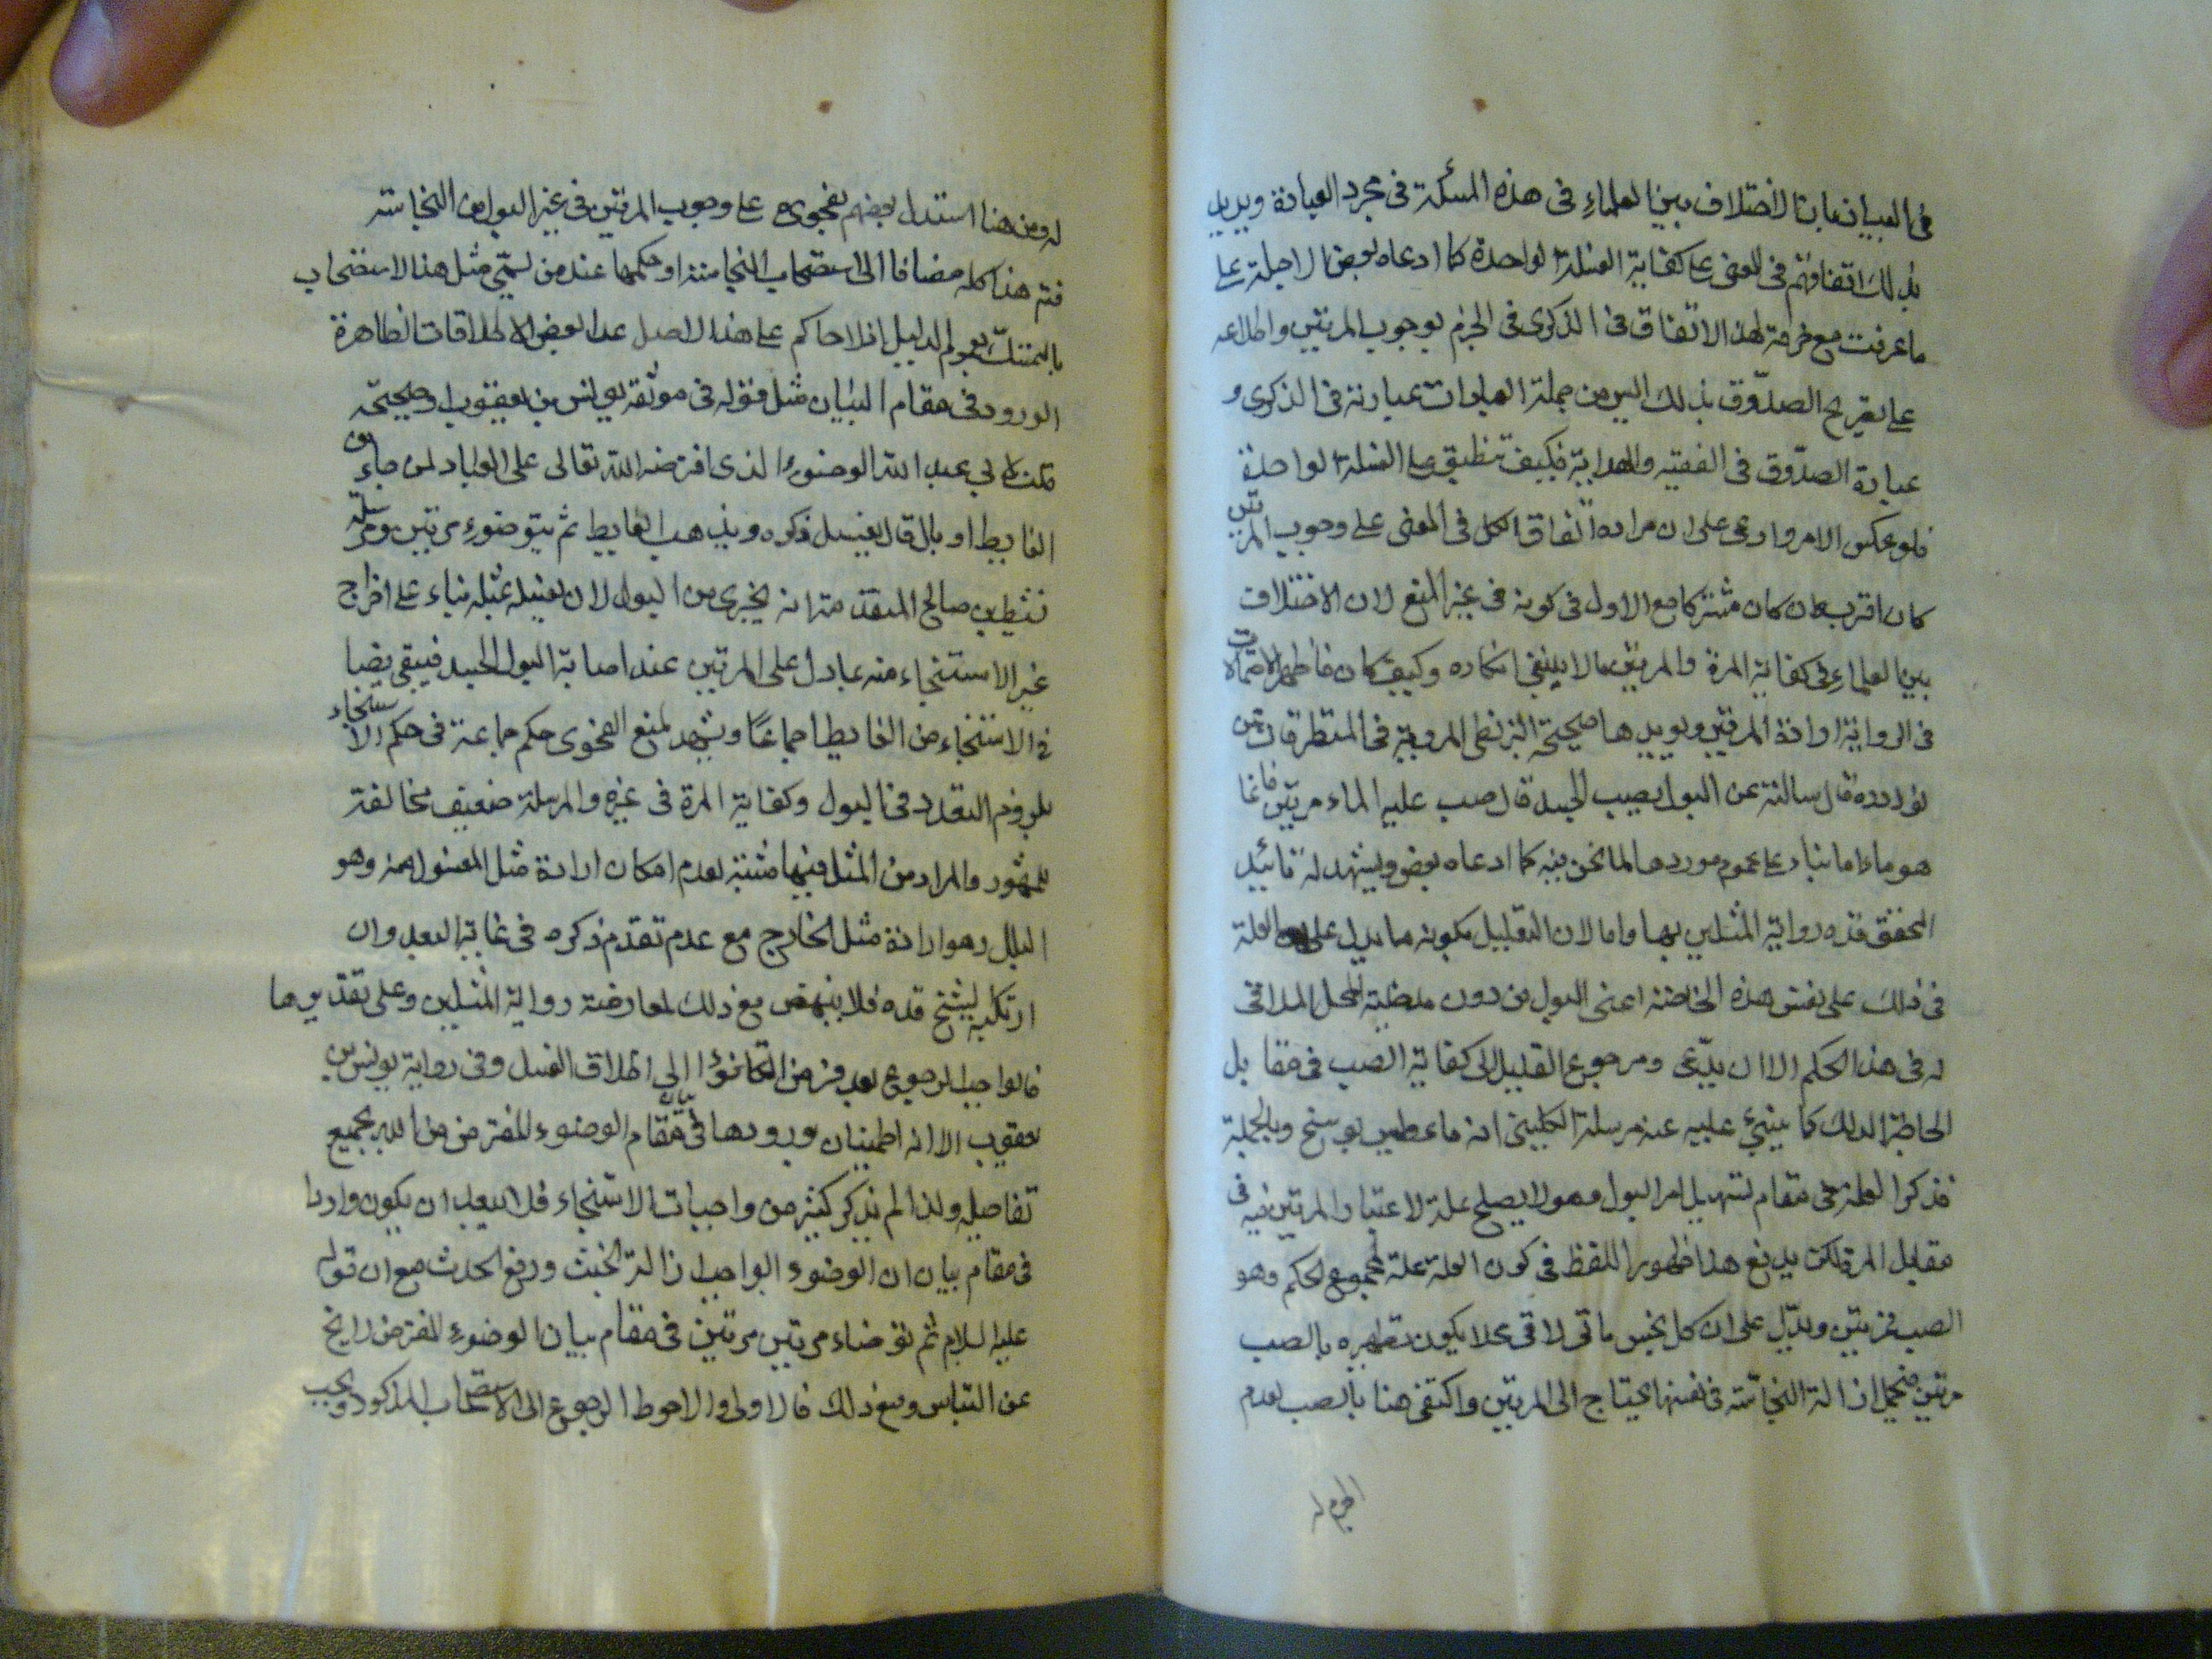 في البيان بان الاختلاف بين العلماء في هذه المسئلة في مجرد العبارة ويريد
بذلك اتفاقهم في المعنى على كفاية الغسلة الواحدة كما ادعاه بعض الاجلة على
ما عرفت مع خرقه لهذا الاتفاق في الذكرى في الجزم بوجوب المرتين واطلاعه
على تصريح الصدوق بذلك اليس من جملة العبارات عبارته في الذكرى و
عبارة الصدوق في الفقيه والهداية فكيف تنطبق على الغسلة الواحدة
فلو عكس الامر وادعى على ان مراده اتفاق الكل في المعنى على وجوب المرتين
كان اقرب وان كان مشتركا مع الاول في كونه في غير المنع لان الاختلاف
بين العلماء في كفاية المرة والمرتين مما لا ينبغي انكاره وكيف كان فاظهر الاحتمالات
في الرواية ارادة المرتين ويؤيدها صحيحة البزنطي المروية في المستطرفات من
نوادره قال سالته عن البول يصيب الجسد قال صب عليه الماء مرتين فانما
هو ماء اما بناء على عموم موردها لما نحن فيه كما ادعاه بعض ويشهد له تائيد
المحقق قده رواية المثلين بها واما لان التعليل بكونه ماء يدل على العلة
في ذلك على نفس هذه الخاصة اعني البول من دون مدخلية للمحل الملاقي
له في هذا الحكم الا ان يدعى ومرجوع القليل الى كفاية الصب في مقابل
الحاجة الدلك كما ينبئ عليه عنه مرسلة الكليني انه ماء وليس بوسخ وبالجملة
فذكر العلة في مقام تسهيل امر البول وهو لا يصلح علة لاعتبار المرتين فيه في
مقابل المرة لكن يدفع هذا ظهور اللفظ في كون العلة علة لمجموع الحكم وهو
الصب مرتين ويدل على ان كل نجس ماتى لاقى محلا يكون تطهيره بالصب
مرتين فيحمل ازالة النجاسة في نفسها يحتاج الى المرتين واكتفى هنا بالصب لعدم
الجرم له
له ومن هنا استدل بعضهم بفحوى على وجوب المرتين في غير البول من النجاسة
فتم هذا كله مضافا الى استصحاب النجاسة او حكمها عند من يسمي مثل هذا الاستصحاب
بالتمسك بعموم الدليل اذ لا حاكم على هذا الاصل عدا بعض الاطلاقات الظاهرة
الورود في مقام البيان مثل قوله في موثقة يونس بن يعقوب او صحيحته
قلت لابي عبد الله الوضوء الذي افترضه الله تعالى على العباد لمن جاء من
الغايط او بال قال يغسل ذكره ويذهب الغايط ثم يتوضوء مرتين ومرسلة
نشيط بن صالح المتقدمة انه يجزي من البول لان يغسله بمثله بناء على اخراج
غير الاستنجاء منه بما دل على المرتين عند اصابة البول الجسد فيبقى نصا
في الاستنجاء من الغايط اجماعا ويشهد لمنع الفحوى حكم جماعة في حكم الاستنجاء
بلزوم التعدد في البول وكفاية المرة في غيره والمرسلة ضعيف مخالفة
للمشهور والمراد من المثل فيها مشتبه لعدم امكان ارادة مثل المغسول عنه وهو
البلل وهو ارادة مثل الخارج مع عدم تقدم ذكره في غاية البعد وان
ارتكبه الشيخ قده فلا ينهض مع ذلك لمعارضة رواية المثلين وعلى تقديرها
فالواجب الرجوع بعد فرض التكافؤ الى اطلاق الغسل وفي رواية يونس بن
يعقوب الا انه اطمينان بورودها في مقام بيان الوضوء المفترض من الله بجميع
تفاصيله ولذا لم يذكر كثير من واجبات الاستنجاء فلا يبعد ان يكون واردا
في مقام بيان ان الوضوء الواجب ازالة الخبث ورفع الحدث مع ان قوله
عليه السلام ثم توضاء مرتين مرتين في مقام بيان الوضوء المفترض
عن التباس ومع ذلك فالاولى والاحوط الرجوع الى الاستصحاب المذكور ويجب